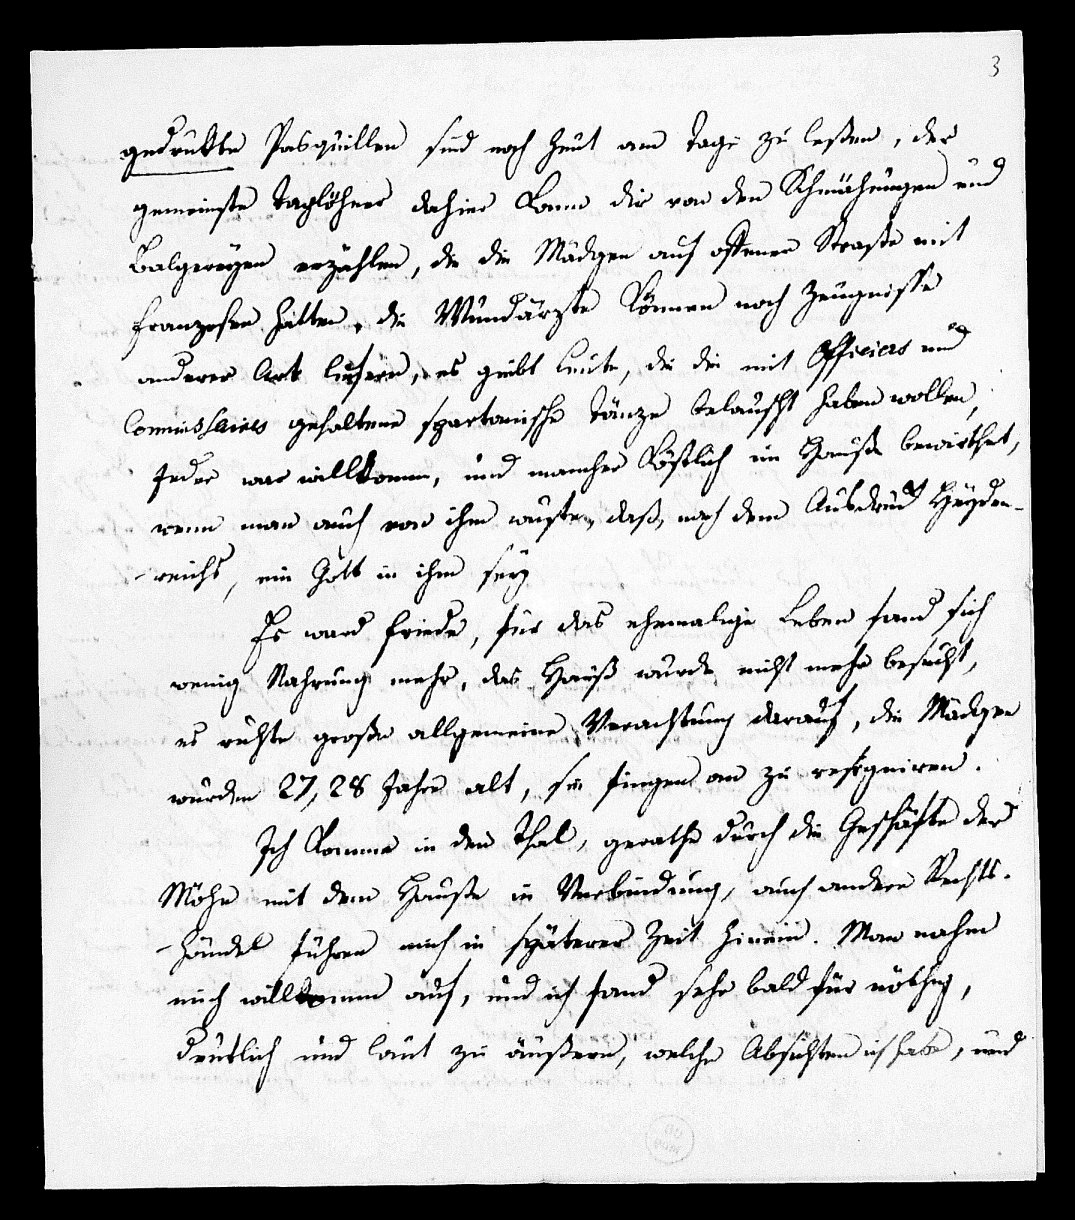 3
gedrukte Pasquillen sind noch heut am Tage zu leßen, der
gemeinste Taglöhner dahier kann dir von den Schmähungen und
Balgereyen erzählen, die die Mädgen auf offener Straße mit
Franzosen hatten, die Wundärzte können noch Zeugnisse
anderer Art liefern, es giebt Leute, die die mit Officiers und
Commissairs gehaltene spartanische Tänze belauscht haben wollen,
Jeder war willkomm, und mancher köstlich im Hauße bewirthet,
wenn man auch von ihm wuste, daß, nach dem Ausdruck Heyden-
-reichs, ein Gott in ihm sey
Es ward Friede, für das ehemalige Leben fand sich
wenig Nahrung mehr, das Hauß wurde nicht mehr besucht,
es ruhte große allgemeine Verachtung darauf, die Mädgen
wurden 27, 28 Jahre alt, sie fingen an zu resigniren.
Ich komme in den Thal, gerathe durch die Geschäfte der
Möhn mit dem Hauße in Verbindung, auch andere Rechts-
-händel führen mich in späterer Zeit hinein. Man nahm
mich willkomm auf, und ich fand sehr bald für nöthig,
deutlich und laut zu äußern, welche Absichten ich habe, und